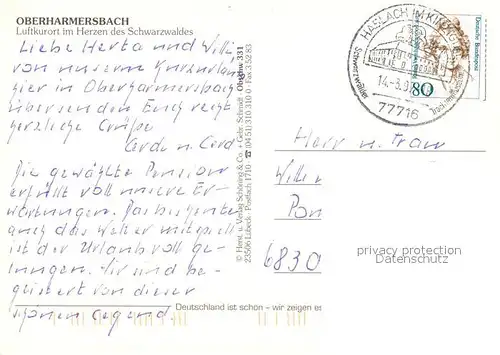 OBERHARMERSBACH
Luftkurort im Herzen des Schwarzwaldes
Liebe Herta und Willi
von unserem Kurzurlaub
hier in Oberharmersbach
übersenden Euch recht
herzliche Grüße
Gerda u. Gerd
Die gewählte Pension
erfüllt voll unsere Er-
wartungen. Da bisher
auch das Wetter mitspielt
ist der Urlaub voll ge-
lungen. Wir sind be-
geistert von dieser
schönen Gegend.
© Herst. u. Verlag Schöning & Co. + Gebr. Schmidt
23506 Lübeck · Postfach 1710 ☎ (04 51) 310 310 · Fax 3 52 83
331
HASLACH IM KINZIGTAL
Schwarzwald
14.-8.9
77716
Deutsche Bundespost
80
Herrn u. Frau
Willi
6830
privacy protection
Datenschutz
Deutschland ist schön – wir zeigen es